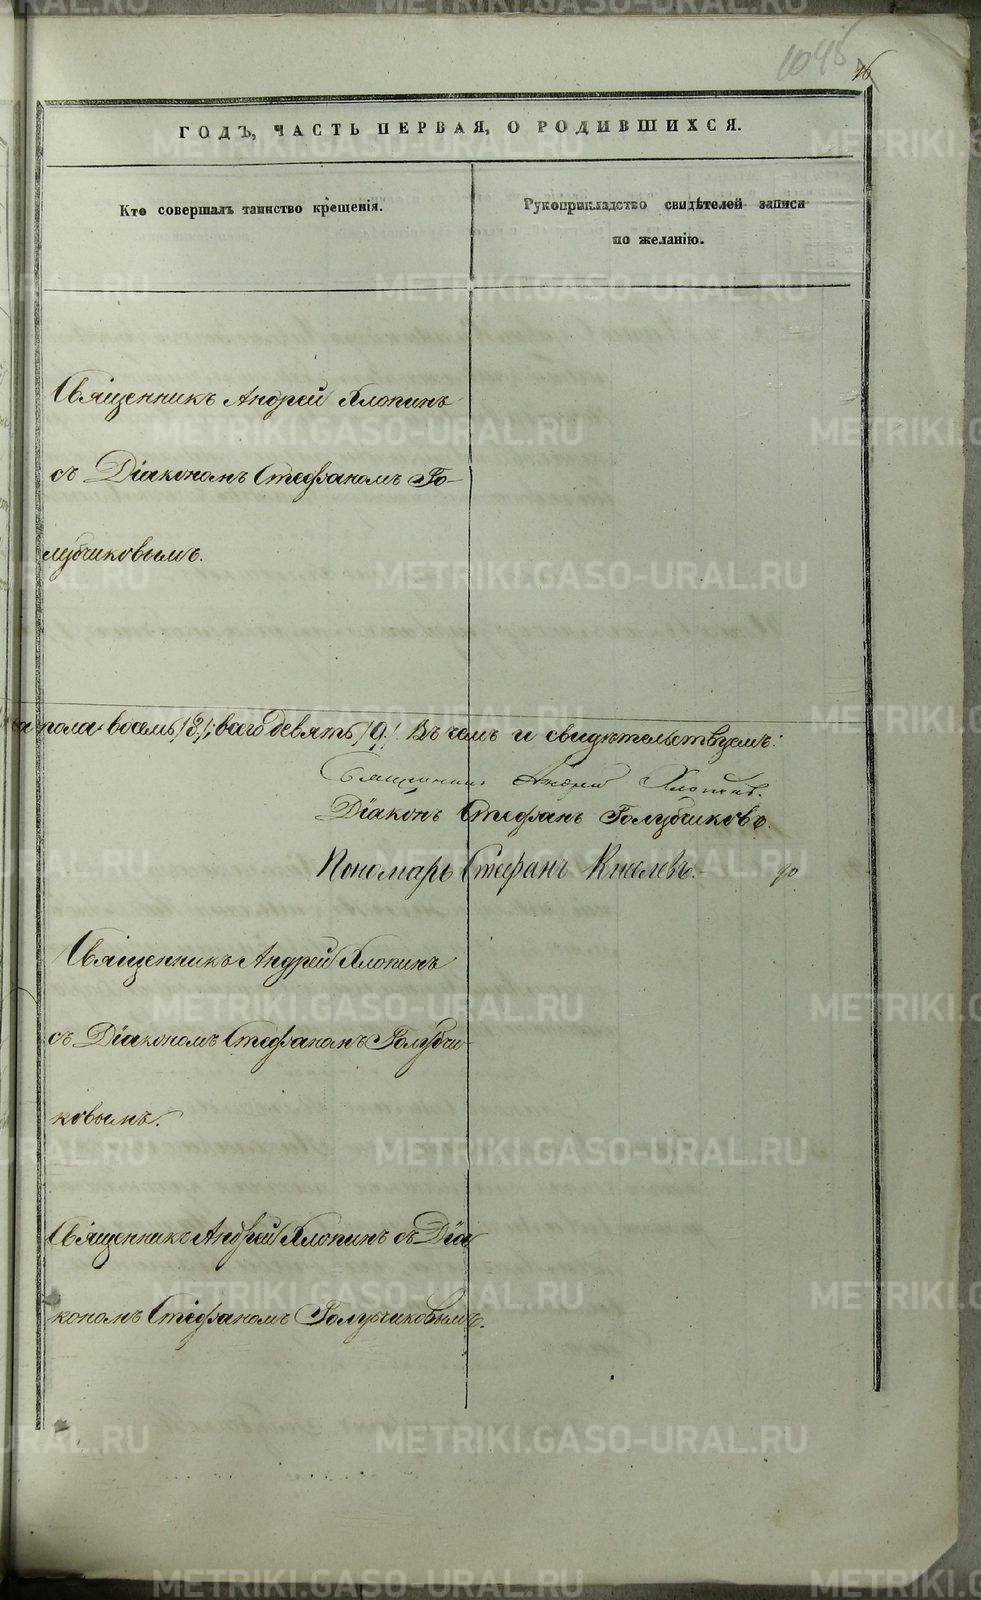 1045
16
ГОДЪ, ЧАСТЬ ПЕРВАЯ, О РОДИВШИХСЯ.
Кто совершалъ таинство крещенія.
Рукоприкладство свидѣтелей записи
по желанію.
Священникъ Андрей Хлопинъ
съ Діакономъ Стефаномъ Го-
лубчиковымъ.
а пола восемь /8/, всего девять /9/. Въ чемъ и свидѣтельствуемъ:
Священникъ Андрей Хлопинъ.
Діаконъ Стефанъ Голубчиковъ.
Пономарь Стефанъ Киселевъ.
Священникъ Андрей Хлопинъ
съ Діакономъ Стефаномъ Голубчи-
ковымъ.
Священникъ Андрей Хлопинъ съ Діа
кономъ Стефаномъ Голубчиковымъ.
METRIKI.GASO-URAL.RU